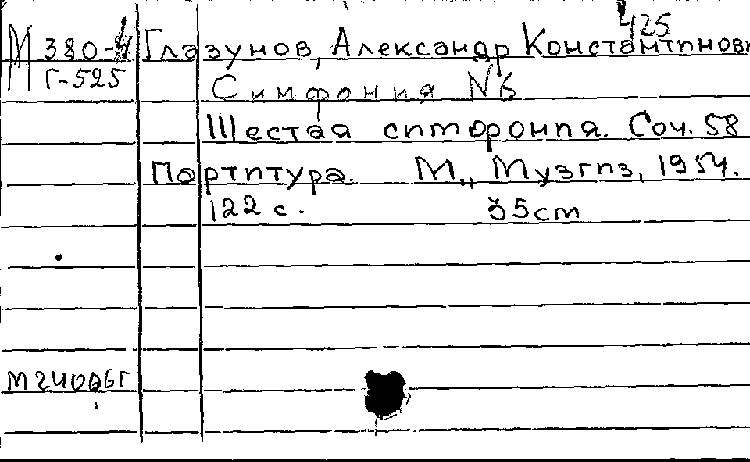 425
М 380-4 Глазунов, Александр Константинови
Г-525 Симфония №6
Шестая симфония. Соч. 58
Партитура. М., Музгиз, 1954.
122 с. 35cm
М24006Г